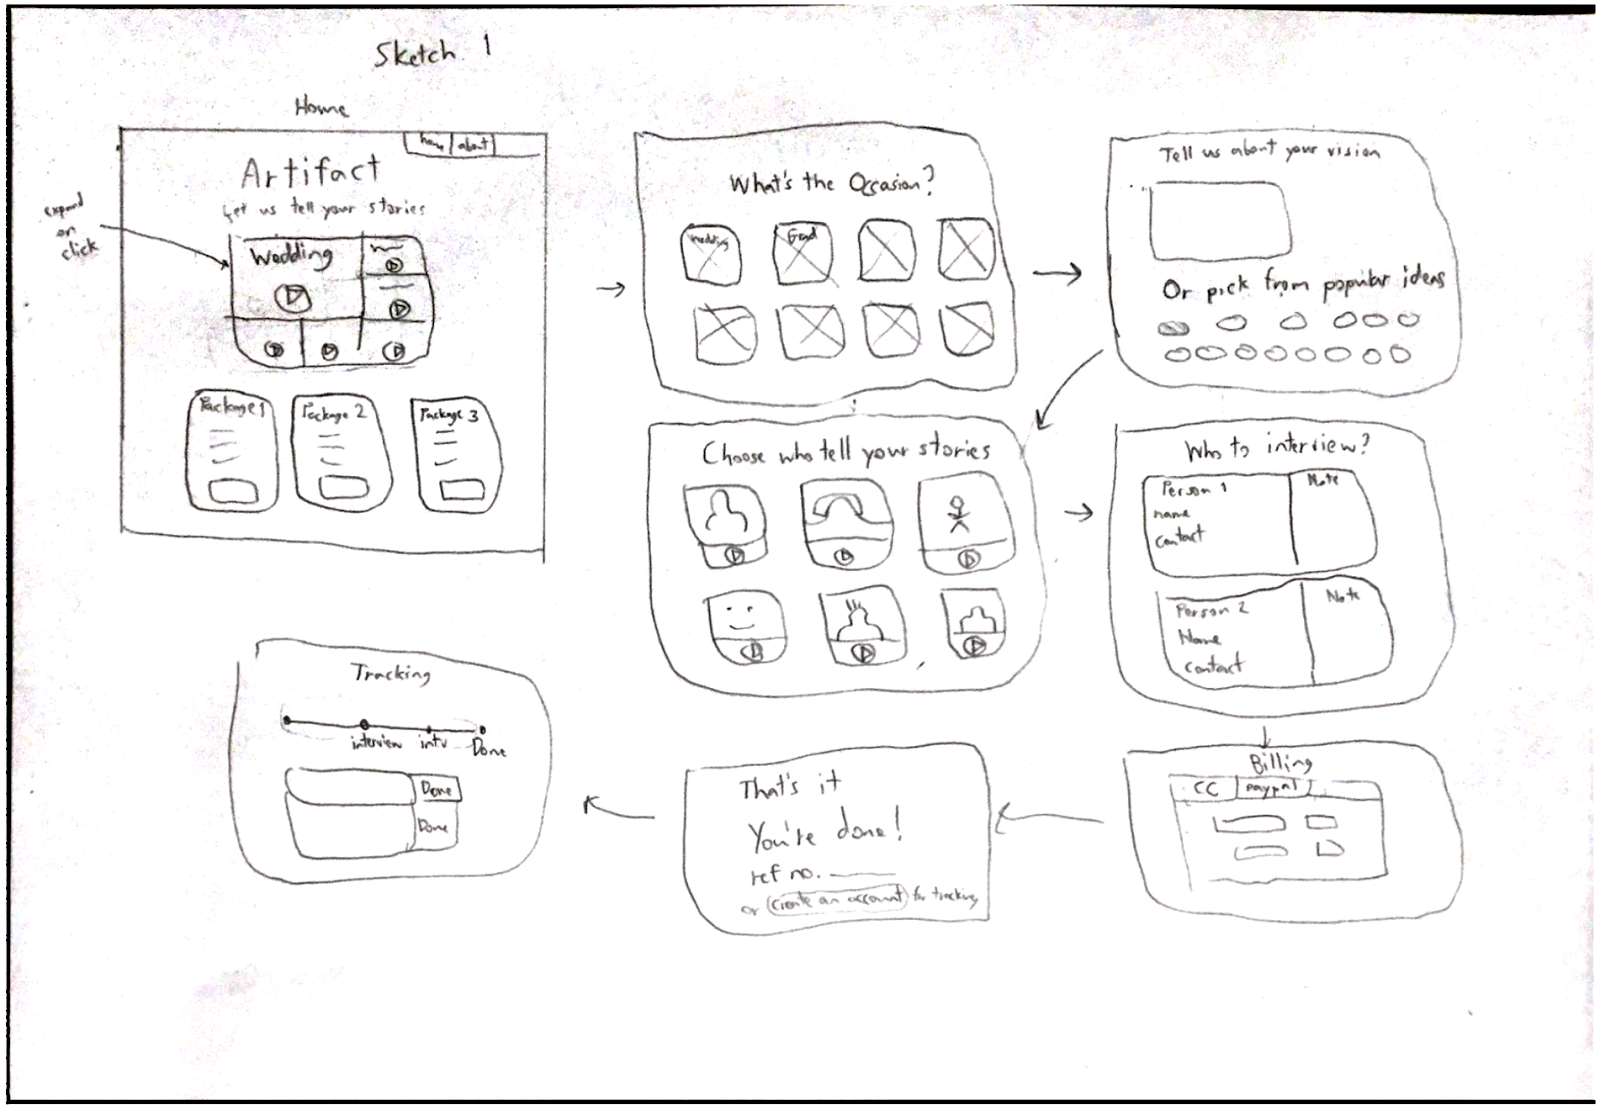 Sketch 1
Home
home about
Artifact
Let us tell your stories
expand
on
click
Wedding
Package 1
Package 2
Package 3
What's the Occasion?
Wedding
Grad
Tell us about your vision
Or pick from popular ideas
Choose who tell your stories
Who to interview?
Person 1
name
contact
Note
Person 2
Name
contact
Note
Billing
CC
paypal
That's it
You're done!
ref no.
or create an account for tracking
Tracking
interview intv Done
Done
Done